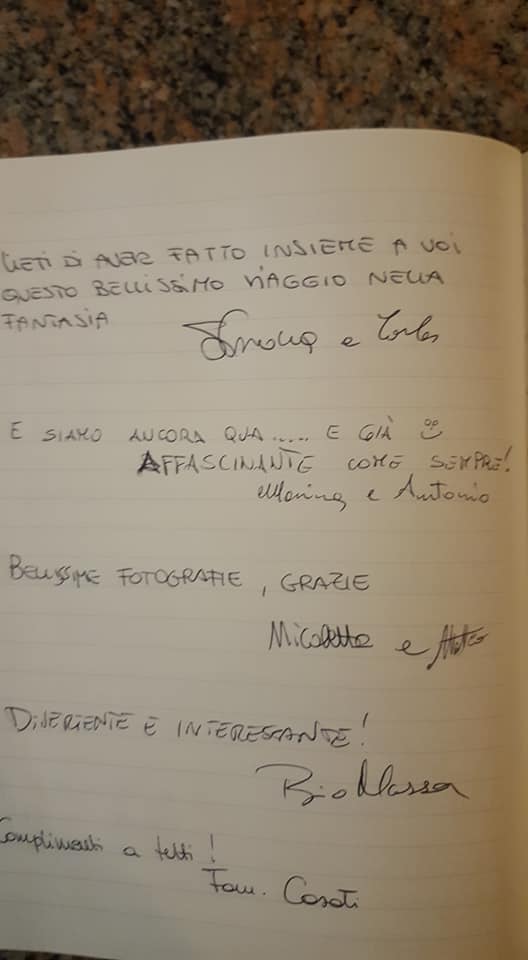 LIETI DI AVER FATTO INSIEME A VOI
QUESTO BELLISSIMO VIAGGIO NELLA
FANTASIA
e
E SIAMO ANCORA QUA..... E GIÀ
AFFASCINANTE COME SEMPRE!
Marina e Antonio
BELLISSIME FOTOGRAFIE, GRAZIE
Nicoletta e
DIVERTENTE E INTERESSANTE!
Complimenti a tutti!
Fam. Casati